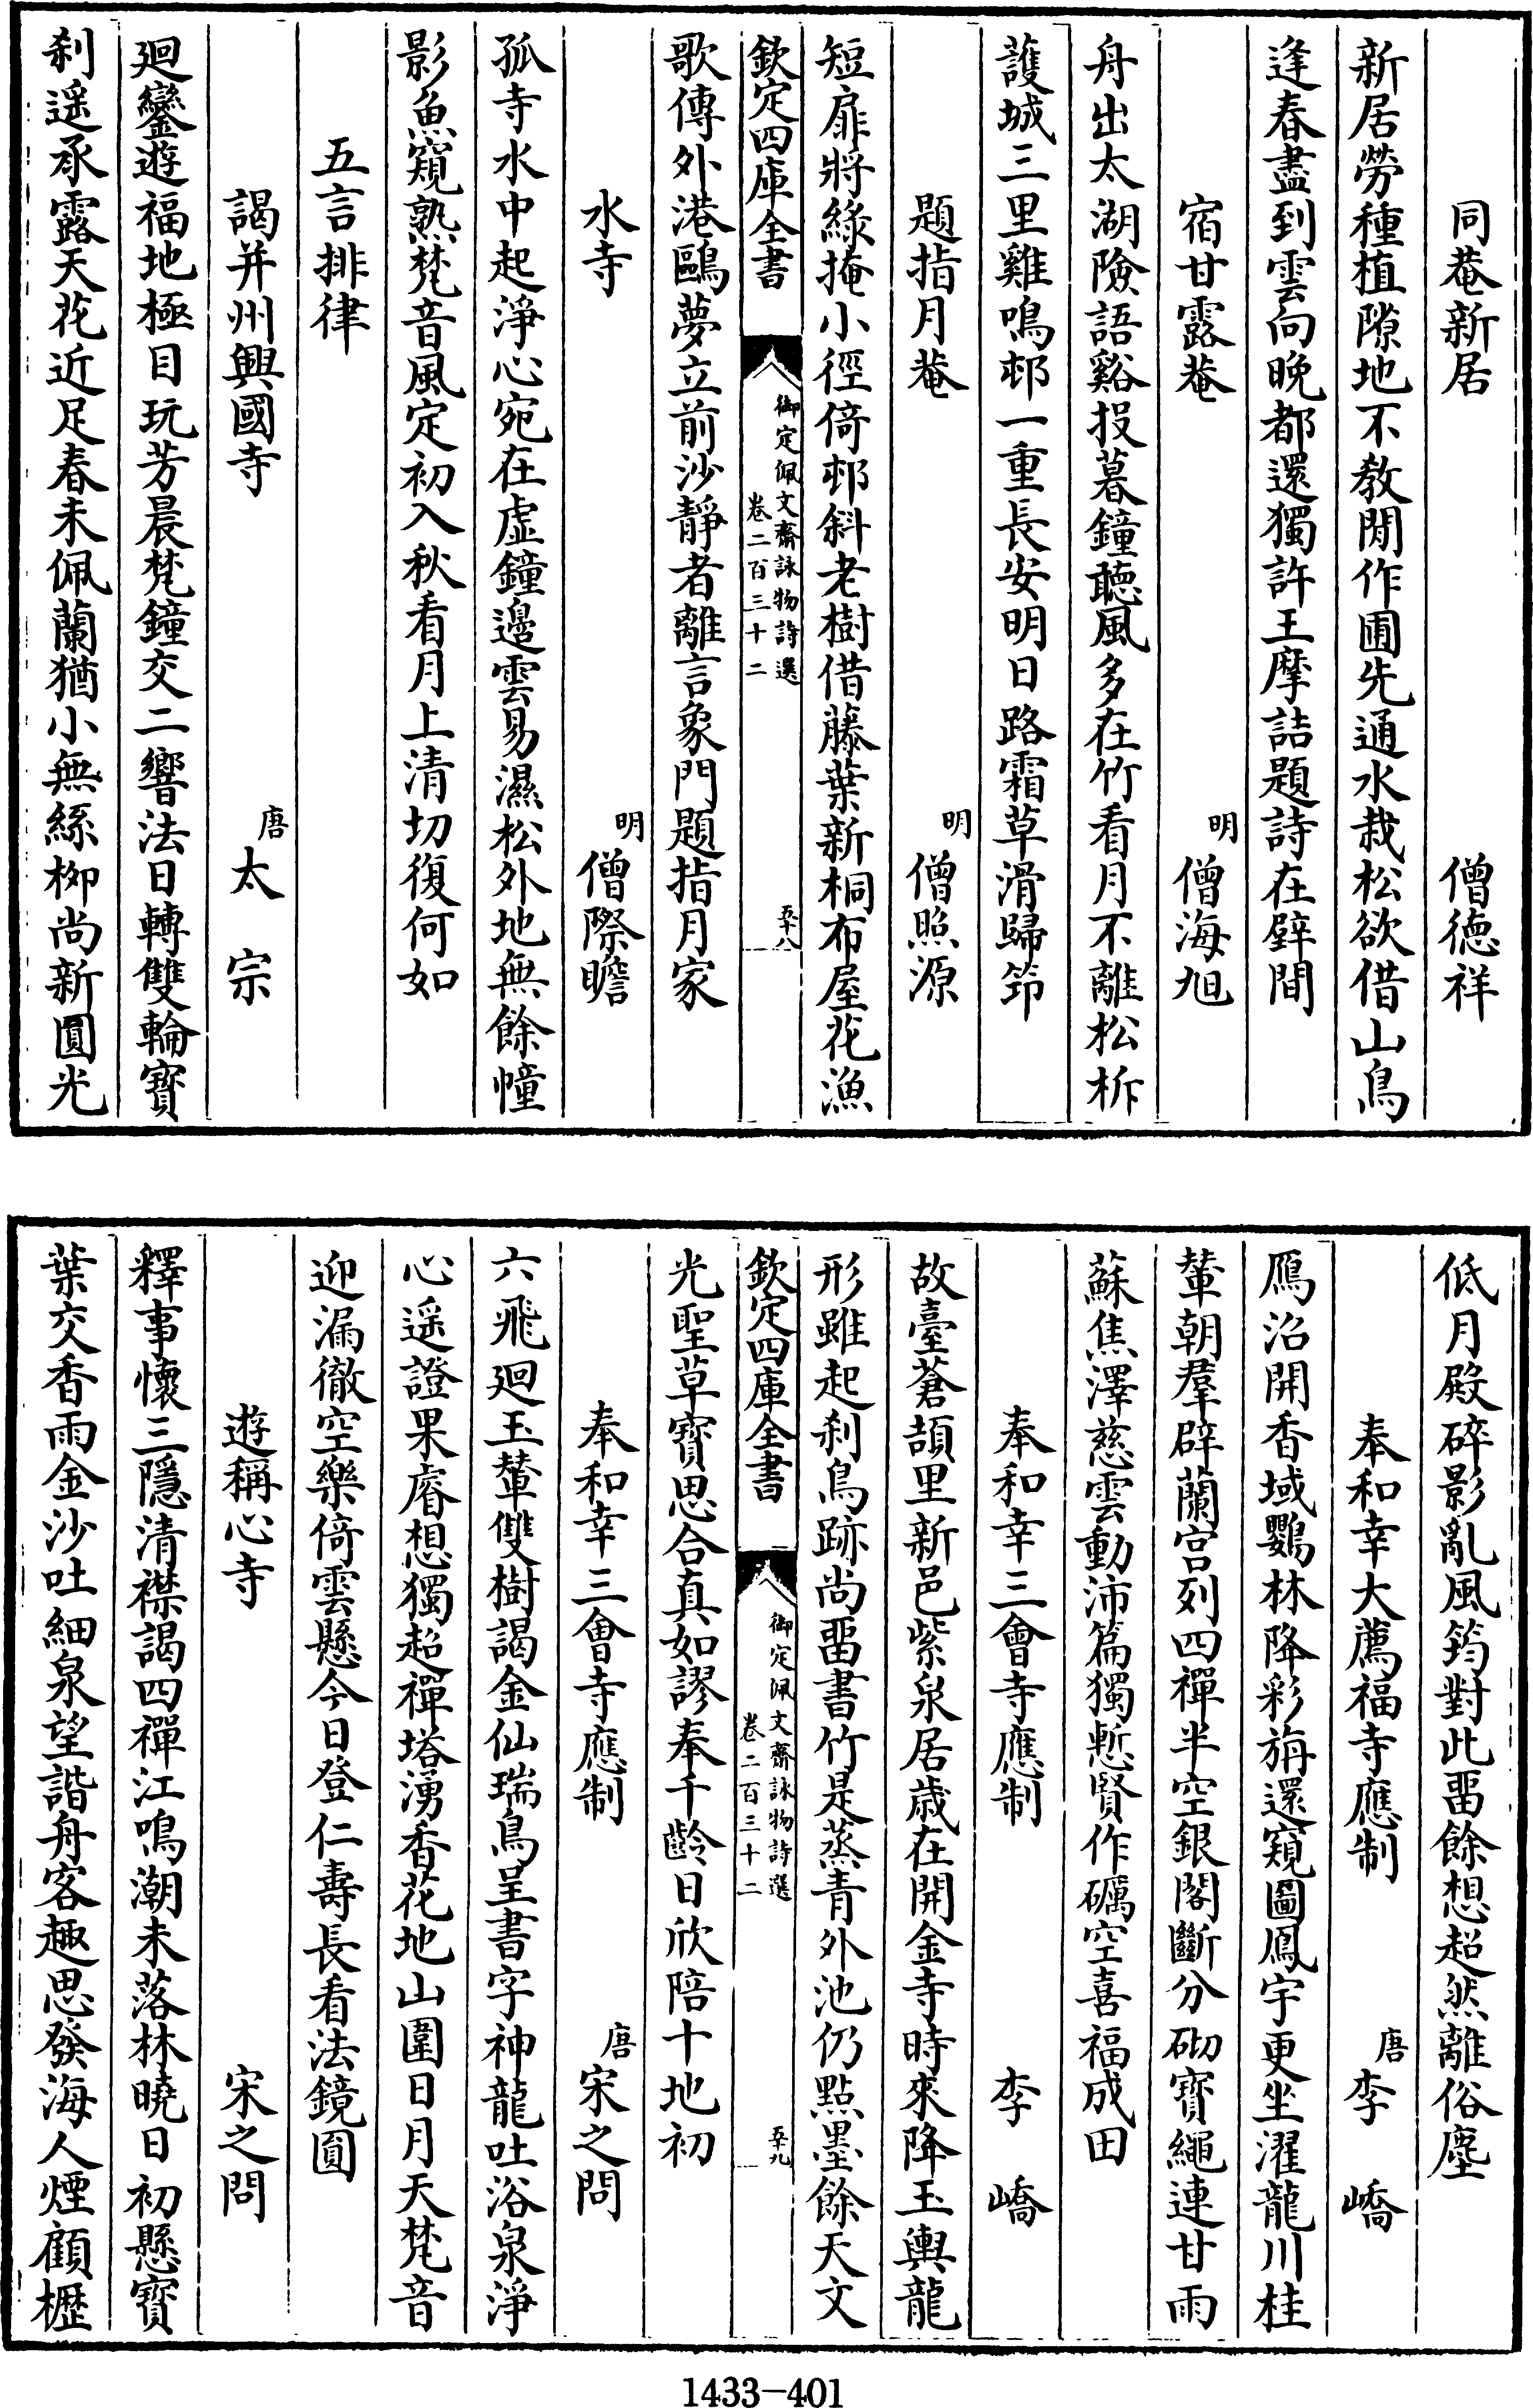 同菴新居　僧德祥
新居勞種植隙地不教閒作圃先通水栽松欲借山鳥
逢春盡到雲向晚都還獨許王摩詰題詩在壁間
宿甘露菴　明僧海旭
舟出太湖險語谿投暮鐘聽風多在竹看月不離松柝
護城三里雞鳴邨一重長安明日路霜草滑歸笻
題指月菴　明僧照源
短扉將綠掩小徑倚邨斜老樹借藤葉新桐布屋花漁
欽定四庫全書　御定佩文齋詠物詩選卷二百三十二　五十八
歌傳外港鷗夢立前沙靜者離言象門題指月家
水寺　明僧際瞻
孤寺水中起淨心宛在虛鐘邊雲易濕松外地無餘幢
影魚窺熟梵音風定初入秋看月上清切復何如
五言排律
謁并州興國寺　唐太宗
廻鑾遊福地極目玩芳晨梵鐘交二響法日轉雙輪寶
刹遥承露天花近足春未佩蘭猶小無絲柳尚新圓光
低月殿碎影亂風筠對此畱餘想超然離俗塵
奉和幸大薦福寺應制　唐李嶠
鴈沼開香域鸚林降彩旃還窺圖鳳宇更坐濯龍川桂
輦朝羣辟蘭宫列四禪半空銀閣斷分砌寶繩連甘雨
蘇焦澤慈雲動沛篇獨慙賢作礪空喜福成田
奉和幸三會寺應制　李嶠
故臺蒼頡里新邑紫泉居歲在開金寺時來降玉輿龍
形雖起刹鳥跡尚畱書竹是蒸青外池仍點墨餘天文
欽定四庫全書　御定佩文齋詠物詩選卷二百三十二　五十九
光聖草寶思合真如謬奉千齡日欣陪十地初
奉和幸三會寺應制　唐宋之問
六飛廻玉輦雙樹謁金仙瑞鳥呈書字神龍吐浴泉淨
心遥證果睿想獨超禪塔湧香花地山圍日月天梵音
迎漏徹空樂倚雲懸今日登仁壽長看法鏡圓
遊稱心寺　宋之問
釋事懷三隱清襟謁四禪江鳴潮未落林曉日初懸寶
葉交香雨金沙吐細泉望諧舟客趣思發海人煙顧櫪
1433-401